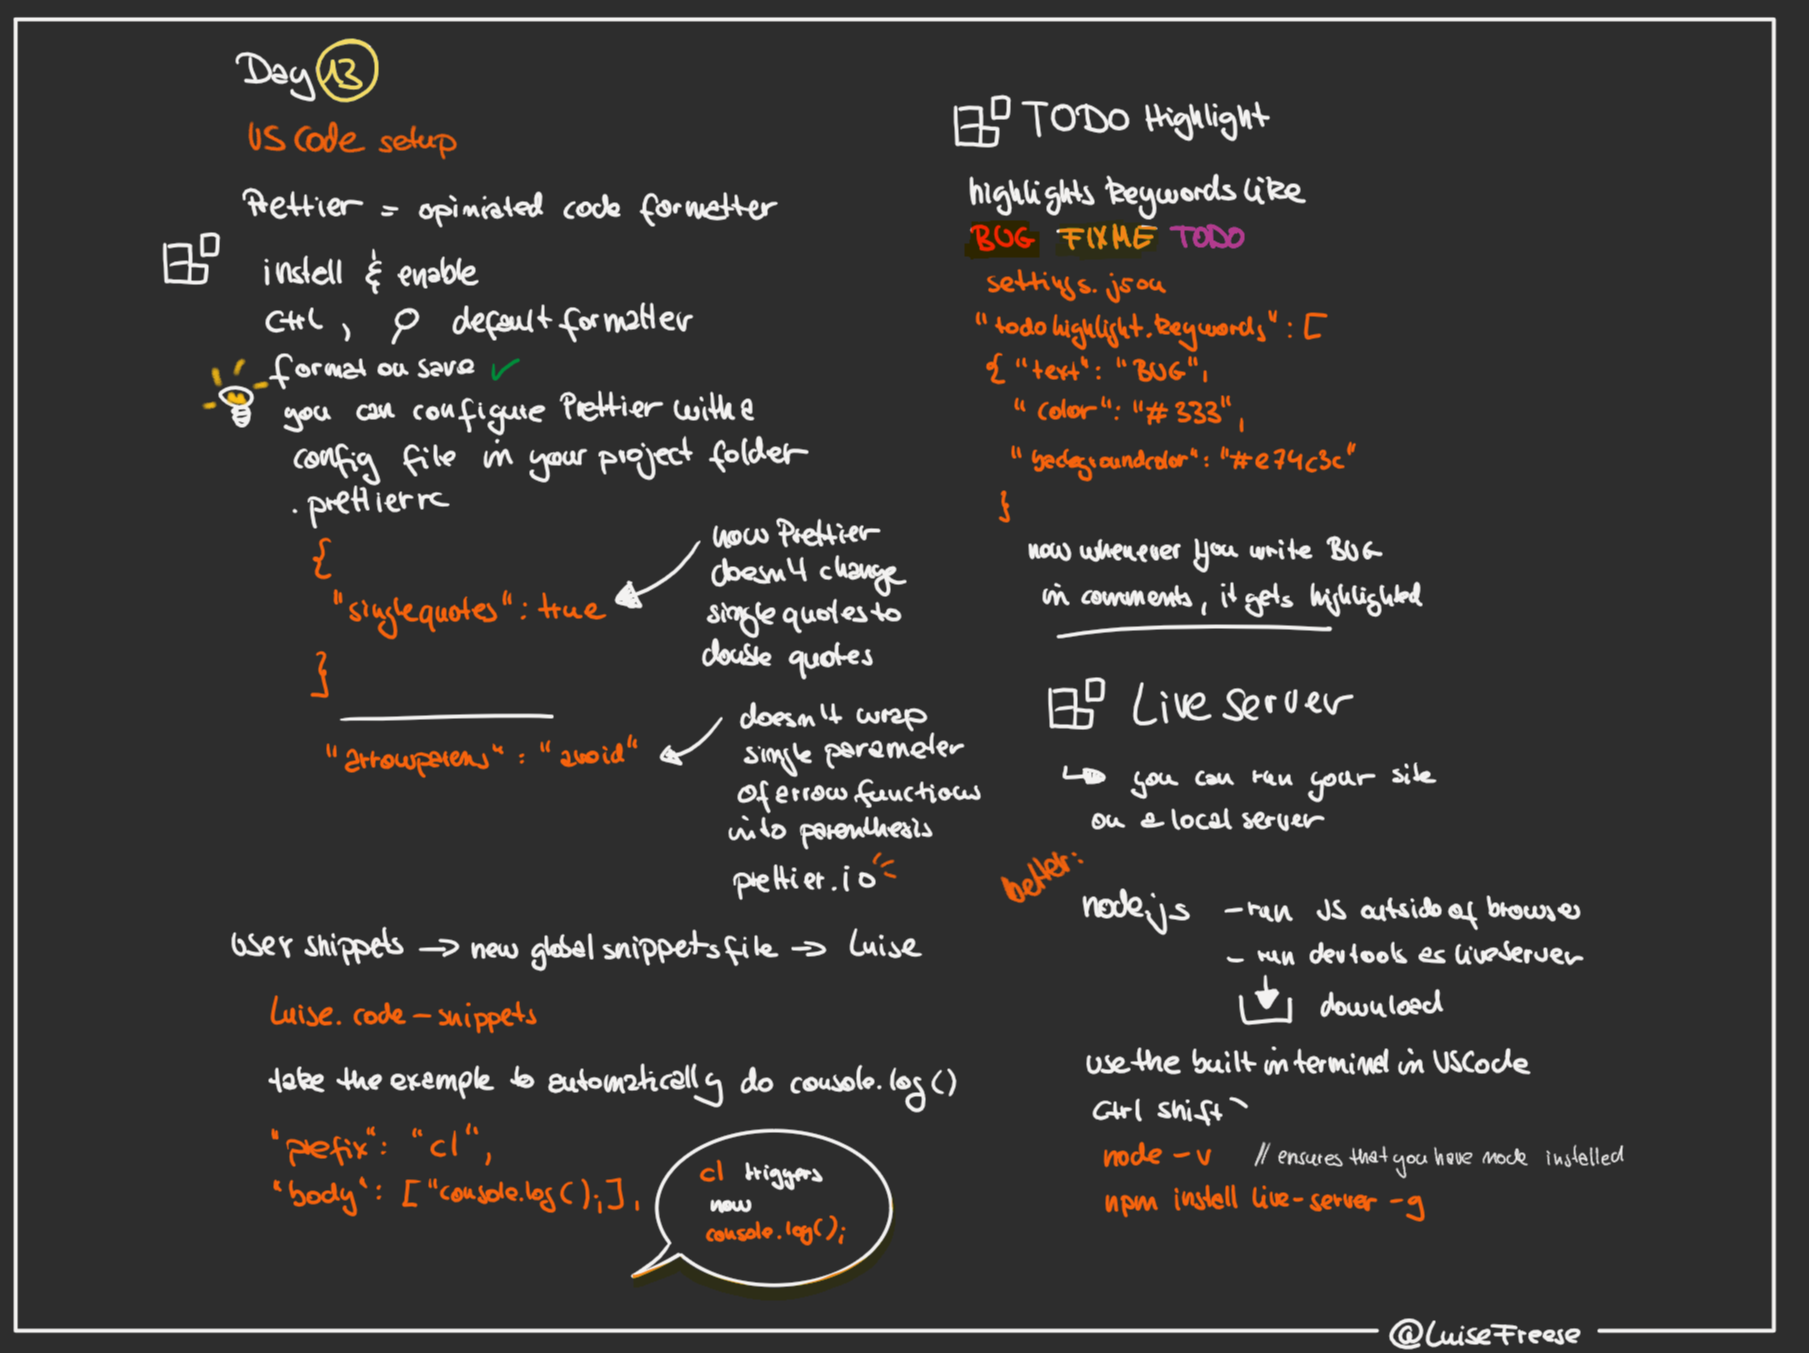 Day 13
VS Code setup
Prettier = opiniated code formatter
install & enable
Ctrl , default formatter
format on save ✓
you can configure Prettier with a
config file in your project folder
.prettierrc
{
"singlequotes": true
}
now Prettier
doesn't change
single quotes to
double quotes
"arrowparens": "avoid"
doesn't wrap
single parameter
of arrow functions
into parenthesis
prettier.io
user snippets → new global snippets file → Luise
Luise.code-snippets
take the example to automatically do console.log()
"prefix": "cl",
"body": ["console.log();],
cl triggers
now
console.log();
TODO Highlight
highlights keywords like
BUG FIXME TODO
settings.json
"todohighlight.keywords": [
{ "text": "BUG",
"color": "#333",
"backgroundcolor": "#e74c3c"
}
now whenever you write BUG
in comments, it gets highlighted
Live Server
↪ you can run your site
on a local server
better:
node.js - run JS outside of browser
- run devtools as liveServer
download
use the built in terminal in VSCode
Ctrl shift `
node -v // ensures that you have node installed
npm install live-server -g
@LuiseFreese